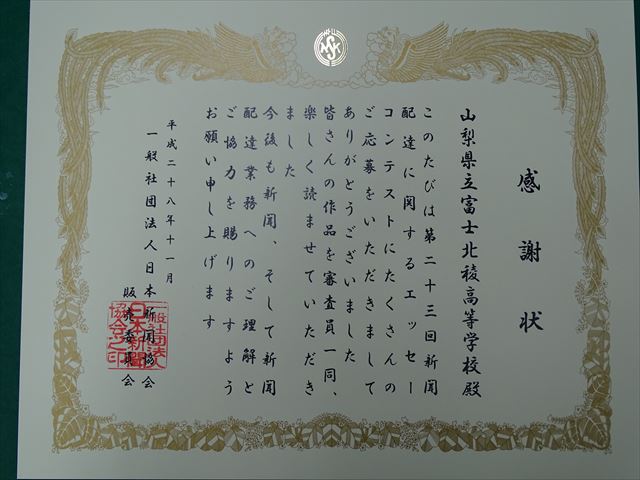 感謝状
山梨県立富士北稜高等学校殿
このたびは第二十三回新聞
配達に関するエッセー
コンテストにたくさんの
ご応募をいただきまして
ありがとうございました
皆さんの作品を審査員一同、
楽しく読ませていただき
ました
今後も新聞、そして新聞
配達業務へのご理解と
ご協力を賜りますよう
お願い申し上げます
平成二十八年十一月
一般社団法人日本新聞協会
販売委員会
一般社団法人
日本新聞
協会之印